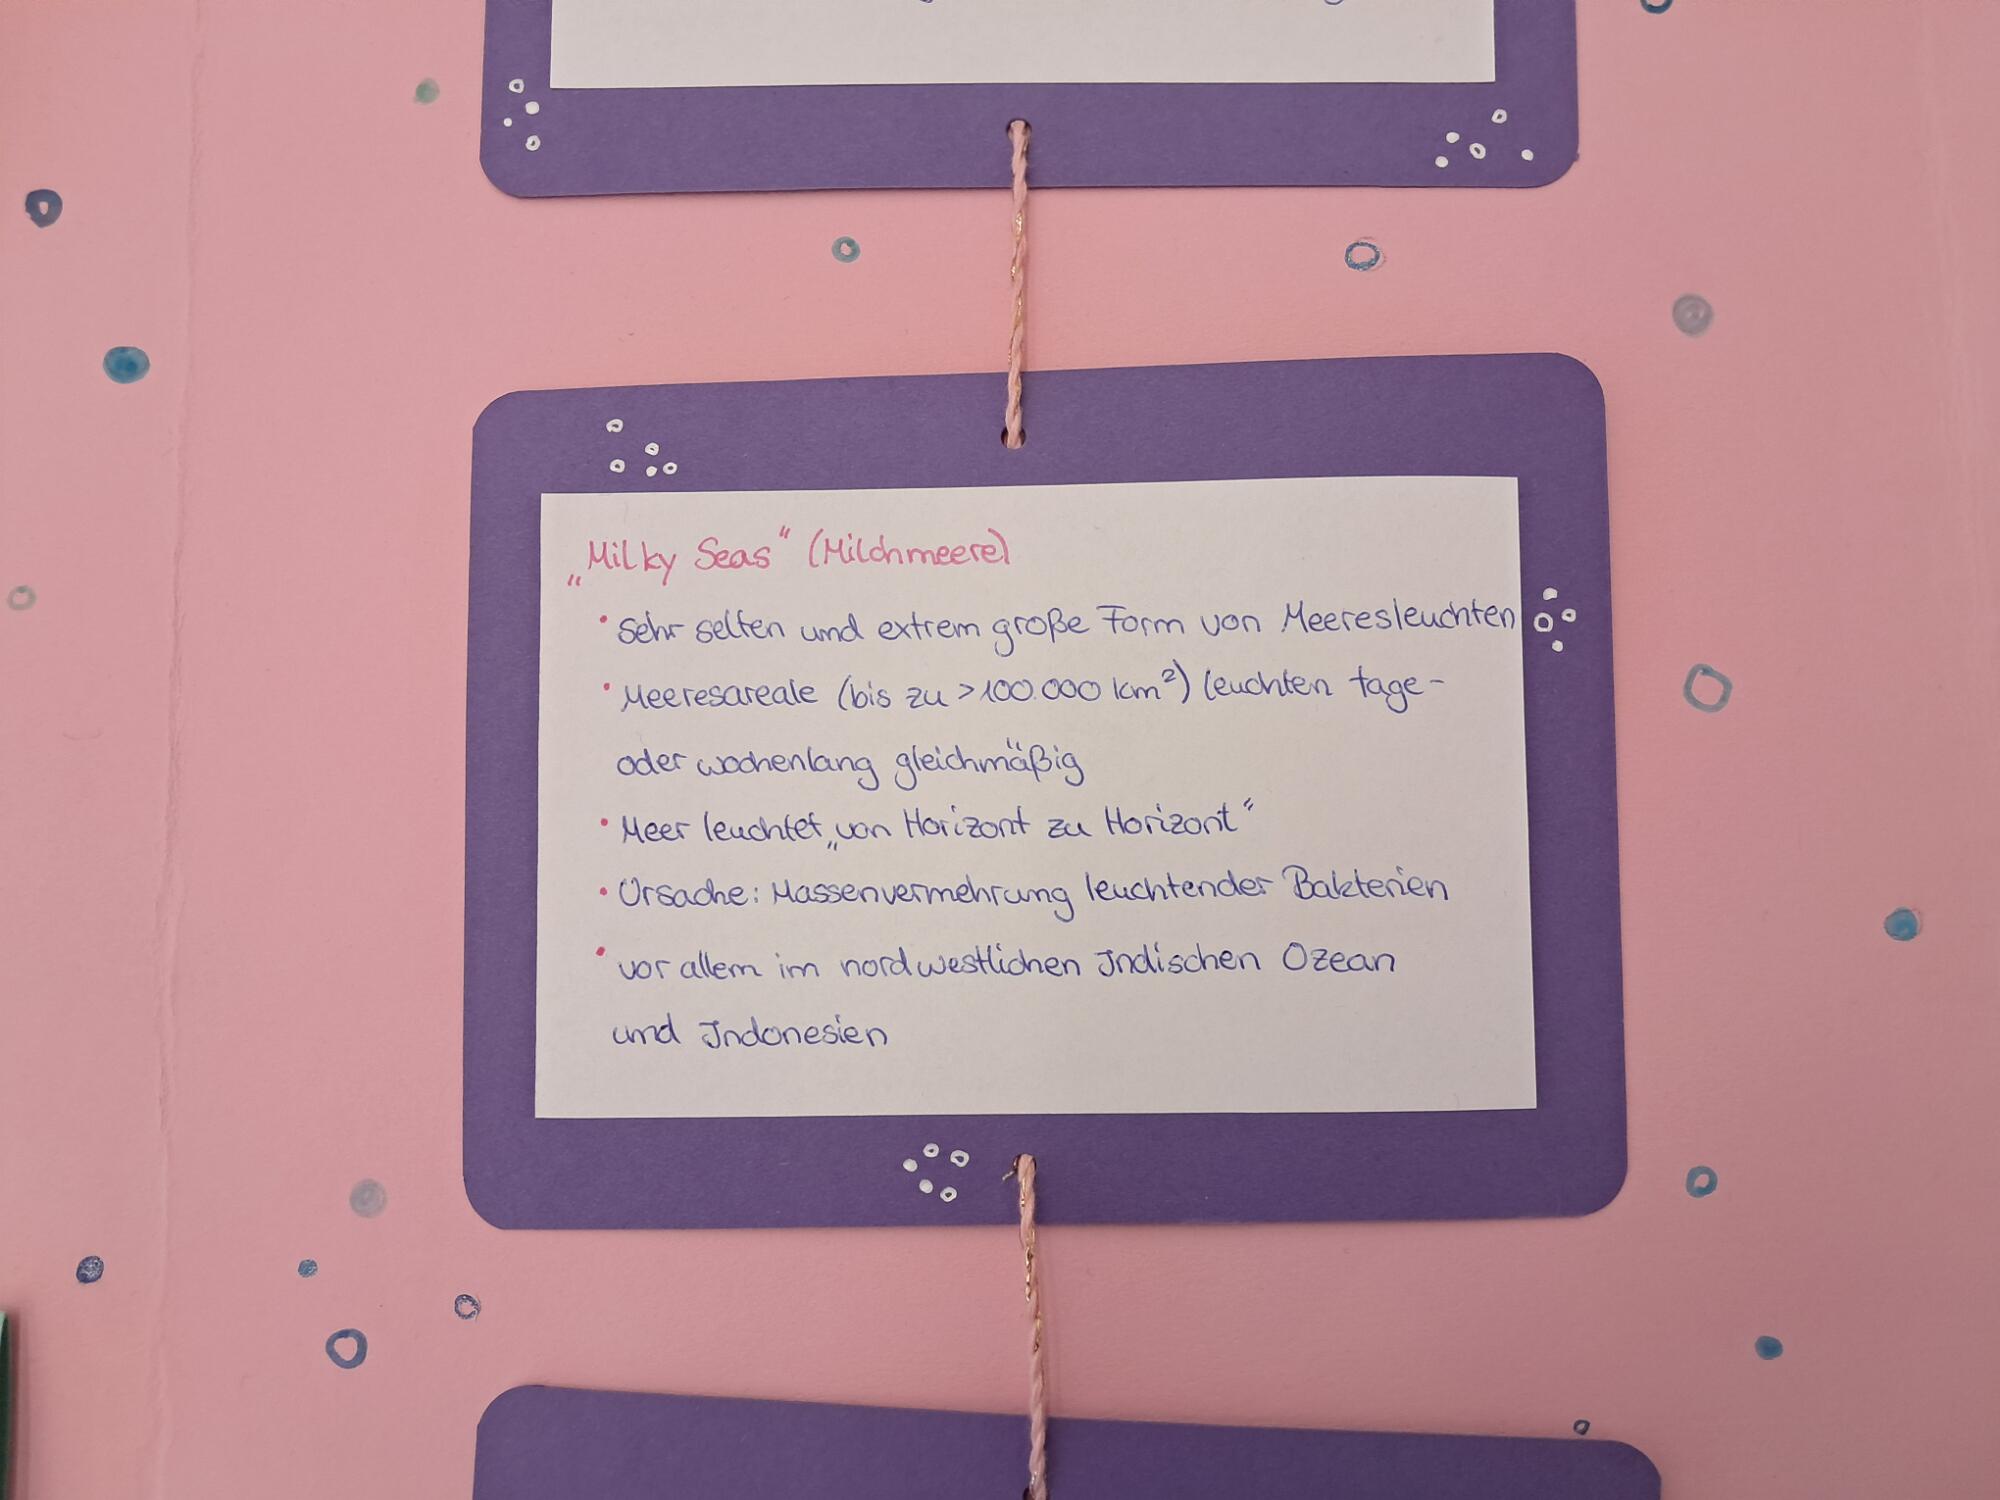 „Milky Seas“ (Milchmeere)
• Sehr selten und extrem große Form von Meeresleuchten
• Meeresareale (bis zu >100.000 km²) leuchten tage-
oder wochenlang gleichmäßig
• Meer leuchtet „von Horizont zu Horizont“
• Ursache: Massenvermehrung leuchtender Bakterien
• vor allem im nordwestlichen Indischen Ozean
und Indonesien